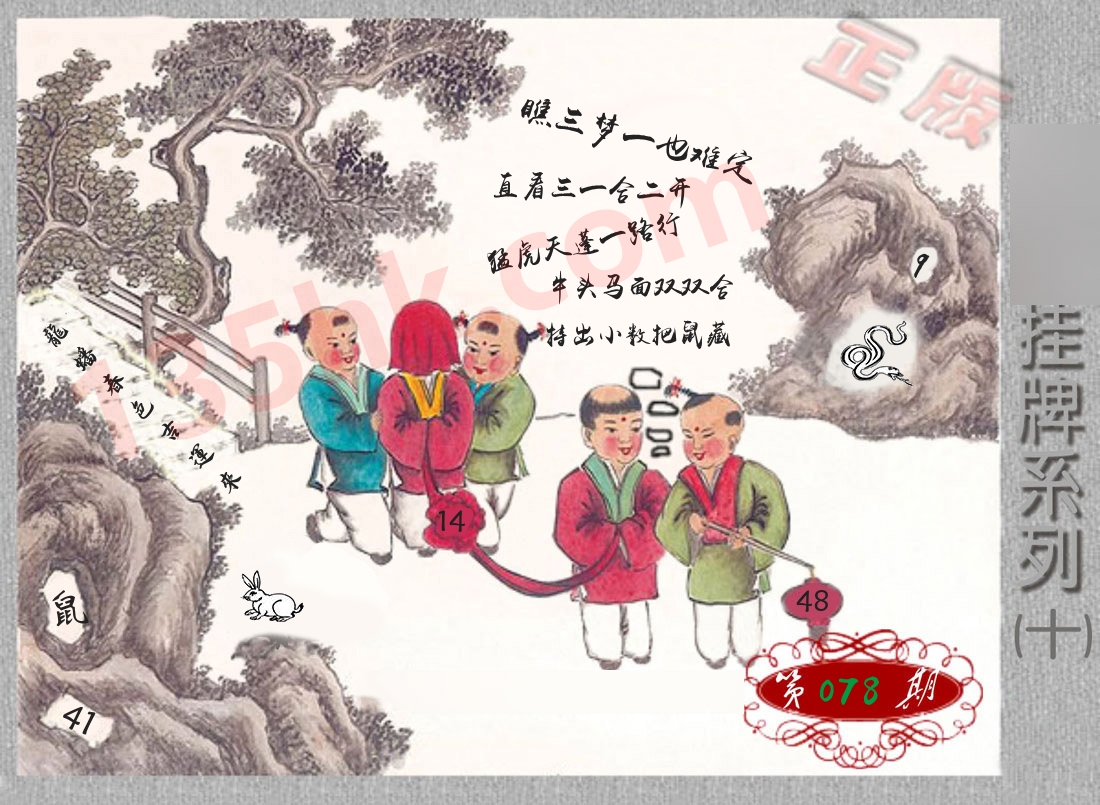 正版
瞧三梦一也难定
直看三一合二开
猛虎天蓬一路行
牛头马面双双合
特出小数把鼠藏
9
龍蟠春色吉運來
14
48
鼠
41
第078期
挂牌系列(十)
185hk.com